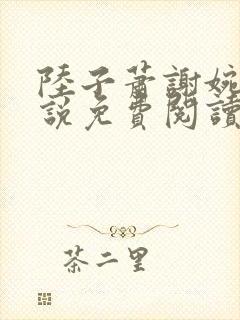 陸子蕭謝婉
說免費閱讀
茶二里